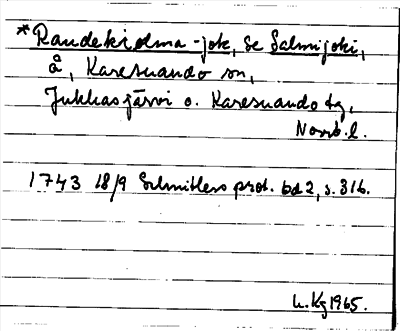 *Raudekielma-jok, se Salmijoki,
å, Karesuando sn,
Jukkasjärvi o. Karesuando tg,
Norrb. l.
1743 18/9 Schnitlers prot. bd 2, s. 316.
h. Kg 1965.